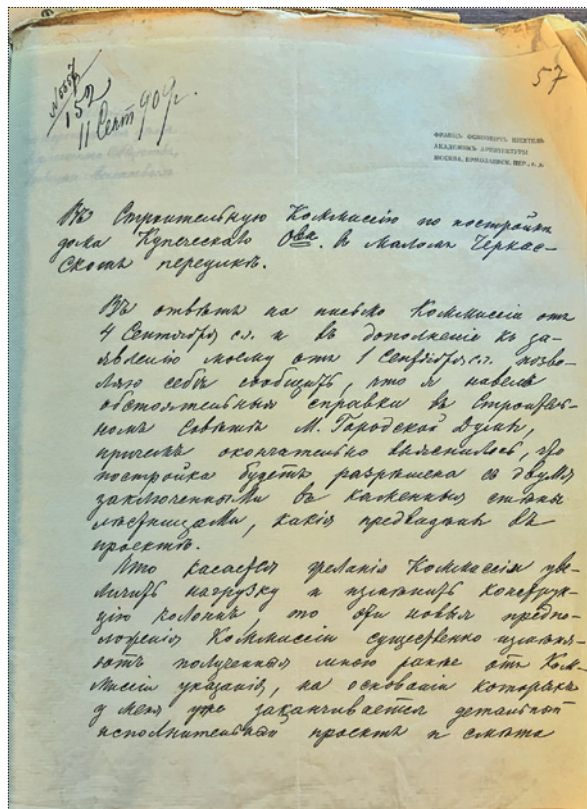 57
№ 5567
152
11 Сент 909 г.
ФРАНЦЪ ОСИПОВИЧЪ КОГНОВИЦКІЙ
АКАДЕМИКЪ АРХИТЕКТУРЫ
МОСКВА, ЕРМОЛАЕВСК. ПЕР., с. д.
Въ Строительную Коммиссію по постройкѣ
дома Купеческаго О-ва въ Маломъ Черкас-
скомъ переулкѣ.
Въ отвѣтъ на письмо Коммиссіи отъ
4 Сентября с.г. и въ дополненіе къ за-
явленію моему отъ 1 Сентября с.г. позво-
ляю себѣ сообщить, что я навелъ
обстоятельныя справки въ Строитель-
номъ Совѣтѣ М. Городской Думы,
причемъ окончательно выяснилось, что
постройка будетъ разрѣшена съ двумя
заключенными въ каменныя стѣны
лѣстницами, какія предвидѣны въ
проектѣ.
Что касается желанія Коммиссіи уве-
личить нагрузку и измѣнить конструк-
цію колоннъ, то эти новыя предпо-
ложенія Коммиссіи существенно измѣня-
ютъ полученныя мною ранѣе отъ Ком-
миссіи указанія, на основаніи которыхъ
у меня уже заканчивается детальный
исполнительный проектъ и смѣта